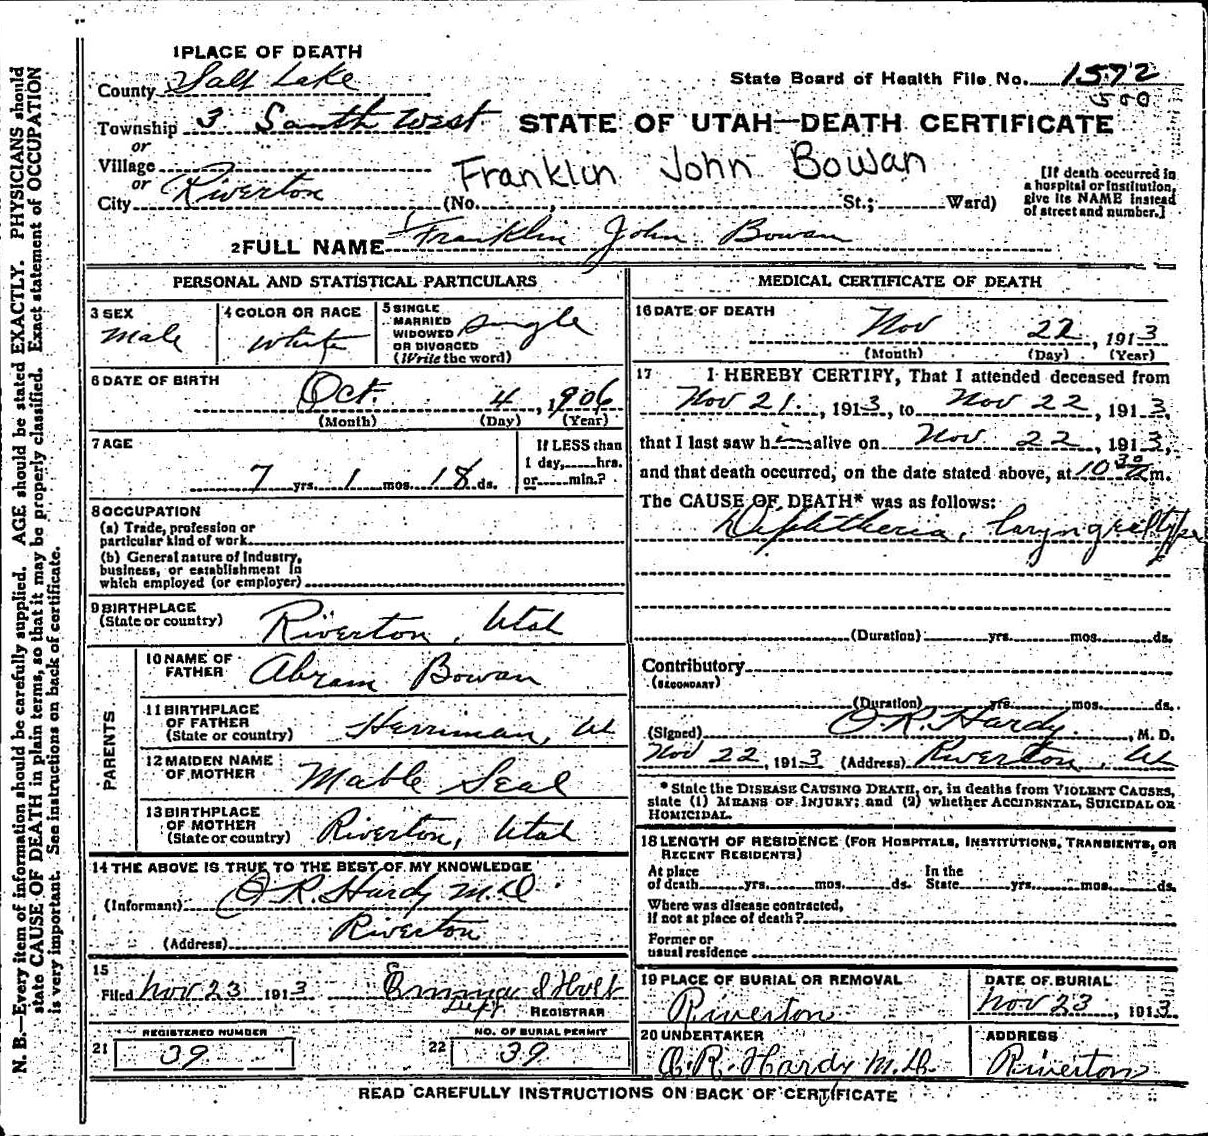 1 PLACE OF DEATH
County Salt Lake
State Board of Health File No. 1572
500
Township 3 South West
STATE OF UTAH—DEATH CERTIFICATE
or
Village
Franklin John Bowan
or
City Riverton (No. , St.; Ward)
[If death occurred in
a hospital or institution,
give its NAME instead
of street and number.]
2 FULL NAME Franklin John Bowan
PERSONAL AND STATISTICAL PARTICULARS
3 SEX
Male
4 COLOR OR RACE
White
5 SINGLE
MARRIED
WIDOWED
OR DIVORCED
(Write the word)
Single
6 DATE OF BIRTH
Oct. 4, 1906
(Month) (Day) (Year)
7 AGE
7 yrs. 1 mos. 18 ds.
If LESS than
1 day, hrs.
or min.?
8 OCCUPATION
(a) Trade, profession or
particular kind of work
(b) General nature of Industry,
business, or establishment in
which employed (or employer)
9 BIRTHPLACE
(State or country)
Riverton, Utah
PARENTS
10 NAME OF
FATHER
Abram Bowan
11 BIRTHPLACE
OF FATHER
(State or country)
Herriman, Ut
12 MAIDEN NAME
OF MOTHER
Mable Seal
13 BIRTHPLACE
OF MOTHER
(State or country)
Riverton, Utah
14 THE ABOVE IS TRUE TO THE BEST OF MY KNOWLEDGE
(Informant) O R. Hardy M.D
(Address) Riverton
15
Filed Nov 23 1913 Emma S Holt
Dept REGISTRAR
REGISTERED NUMBER
21 39
NO. OF BURIAL PERMIT
22 39
MEDICAL CERTIFICATE OF DEATH
16 DATE OF DEATH
Nov 22, 1913
(Month) (Day) (Year)
17 I HEREBY CERTIFY, That I attended deceased from
Nov 21, 1913, to Nov 22, 1913,
that I last saw h alive on Nov. 22, 1913,
and that death occurred, on the date stated above, at 10 30 a m.
The CAUSE OF DEATH* was as follows:
Diphtheria, laryngeal type
(Duration) yrs. mos. ds.
Contributory
(SECONDARY)
(Duration) yrs. mos. ds.
(Signed) O R. Hardy, M. D.
Nov 22, 1913 (Address) Riverton, Ut
* State the DISEASE CAUSING DEATH, or, in deaths from VIOLENT CAUSES,
state (1) MEANS OF INJURY; and (2) whether ACCIDENTAL, SUICIDAL OR
HOMICIDAL.
18 LENGTH OF RESIDENCE (FOR HOSPITALS, INSTITUTIONS, TRANSIENTS, OR
RECENT RESIDENTS)
At place In the
of death yrs. mos. ds. State yrs. mos. ds.
Where was disease contracted,
if not at place of death?
Former or
usual residence
19 PLACE OF BURIAL OR REMOVAL
Riverton
DATE OF BURIAL
Nov 23, 1913
20 UNDERTAKER
O. R. Hardy M.D.
ADDRESS
Riverton
READ CAREFULLY INSTRUCTIONS ON BACK OF CERTIFICATE
N. B.—Every item of information should be carefully supplied. AGE should be stated EXACTLY. PHYSICIANS should
state CAUSE OF DEATH in plain terms, so that it may be properly classified. Exact statement of OCCUPATION
is very important. See instructions on back of certificate.